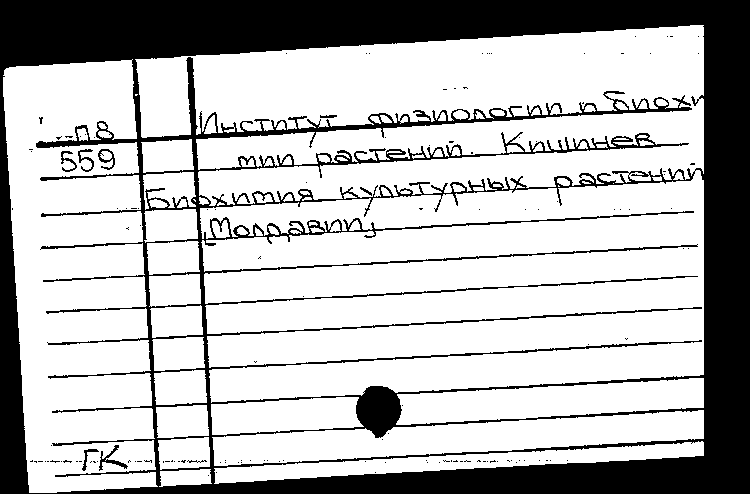 П8
559
Институт физиологии и биохи
мии растений. Кишинев
Биохимия культурных растений
[Молдавии]
ГК